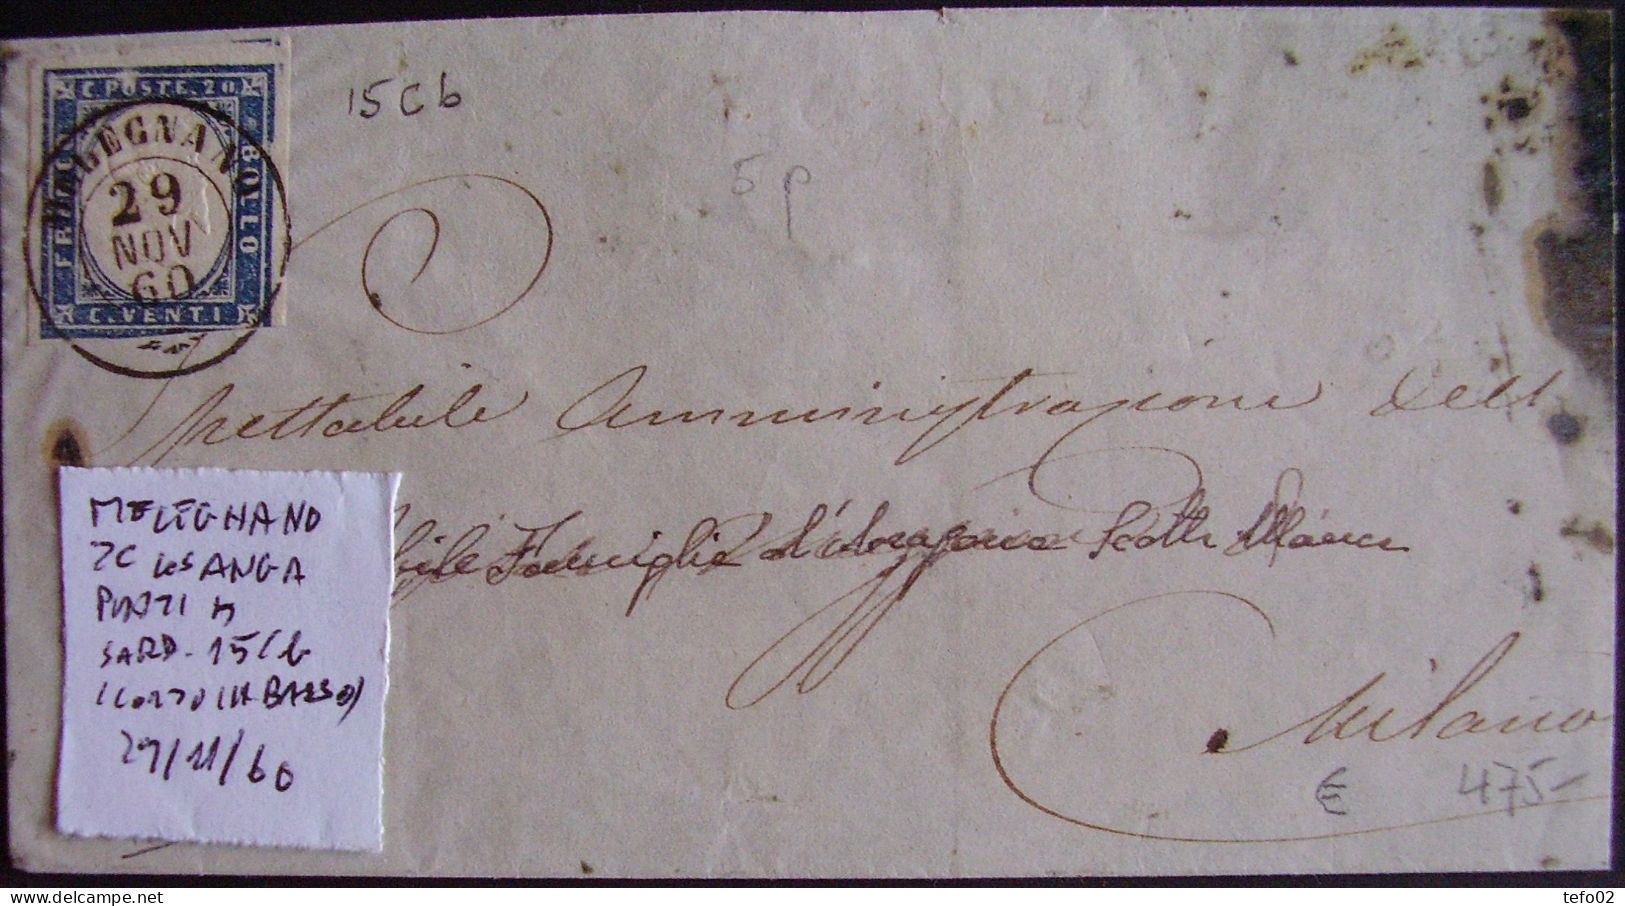 C. POSTE. 20
FRANCO
BOLLO
C. VENTI
MELEGNANO
29
NOV
60
15Cb
5 p
Spettabile Amministrazione dell
Famiglia d'Aragona
Milano
€ 475-
MELEGNANO
2C LOSANGA
PUNTI
SARD. 15Cb
(CORTO IN BASSO)
29/11/60
delcampe.net
tefo02